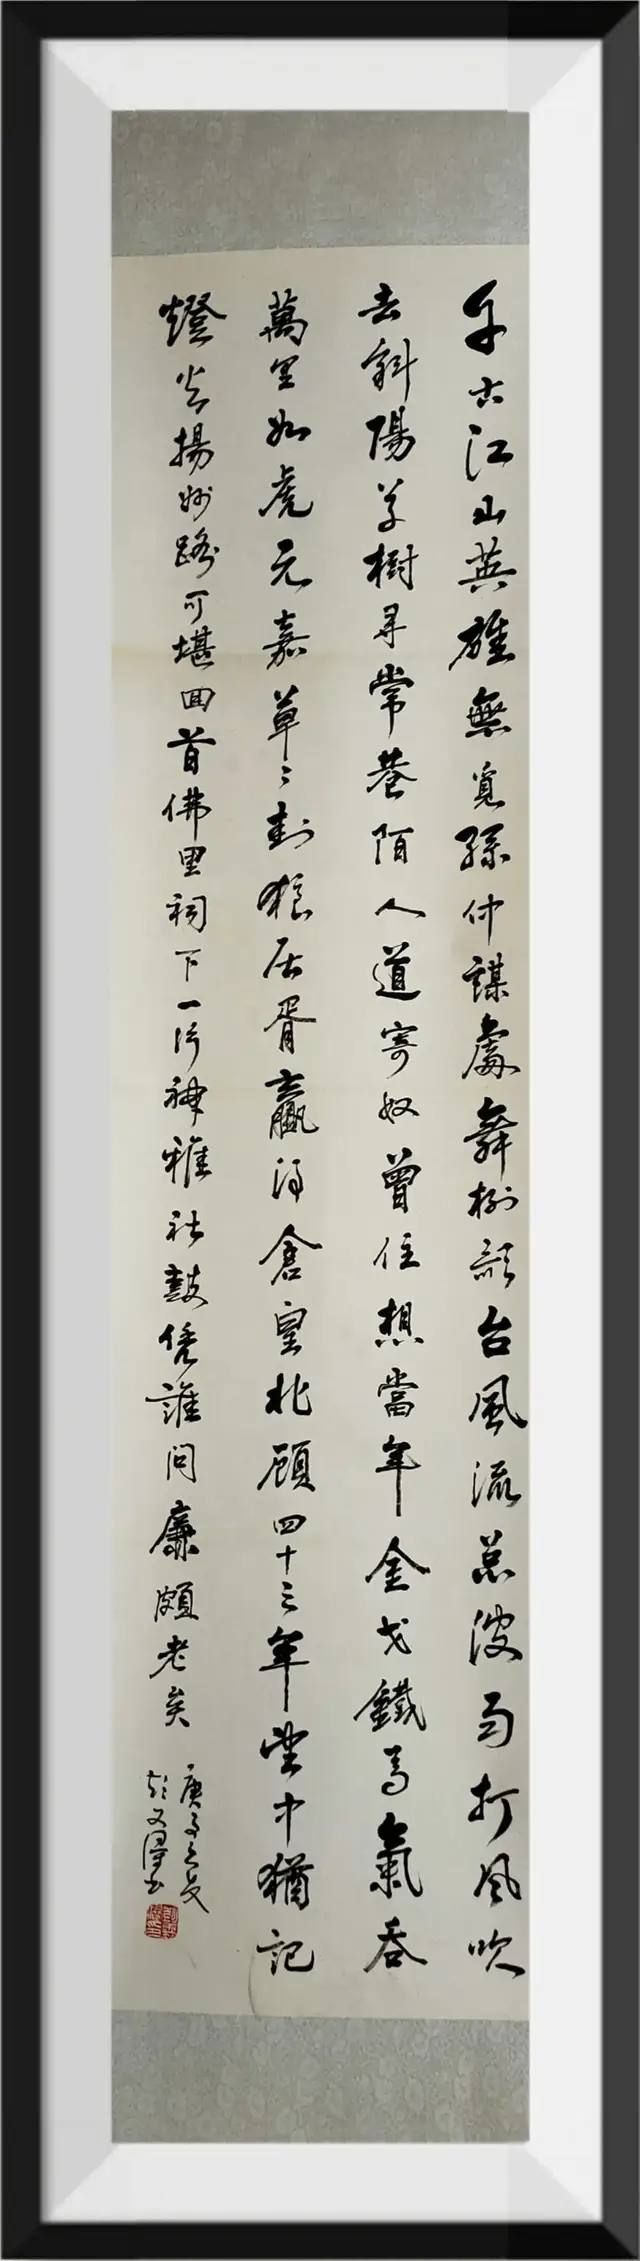 千古江山英雄無覓孫仲謀處舞榭歌台風流总被雨打風吹
去斜陽草樹尋常巷陌人道寄奴曾住想當年金戈鐵馬氣吞
萬里如虎元嘉草〻封狼居胥贏得倉皇北顧四十三年望中猶記
燈火揚州路可堪回首佛里祠下一片神雅社鼓凭誰問廉頗老矣
庚子之夏
彭又得书